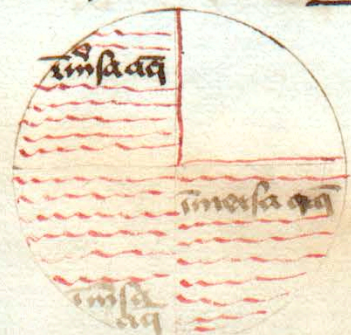 īm̄sa aq̄
īmersa aq̄
īm̄sa
aq̄